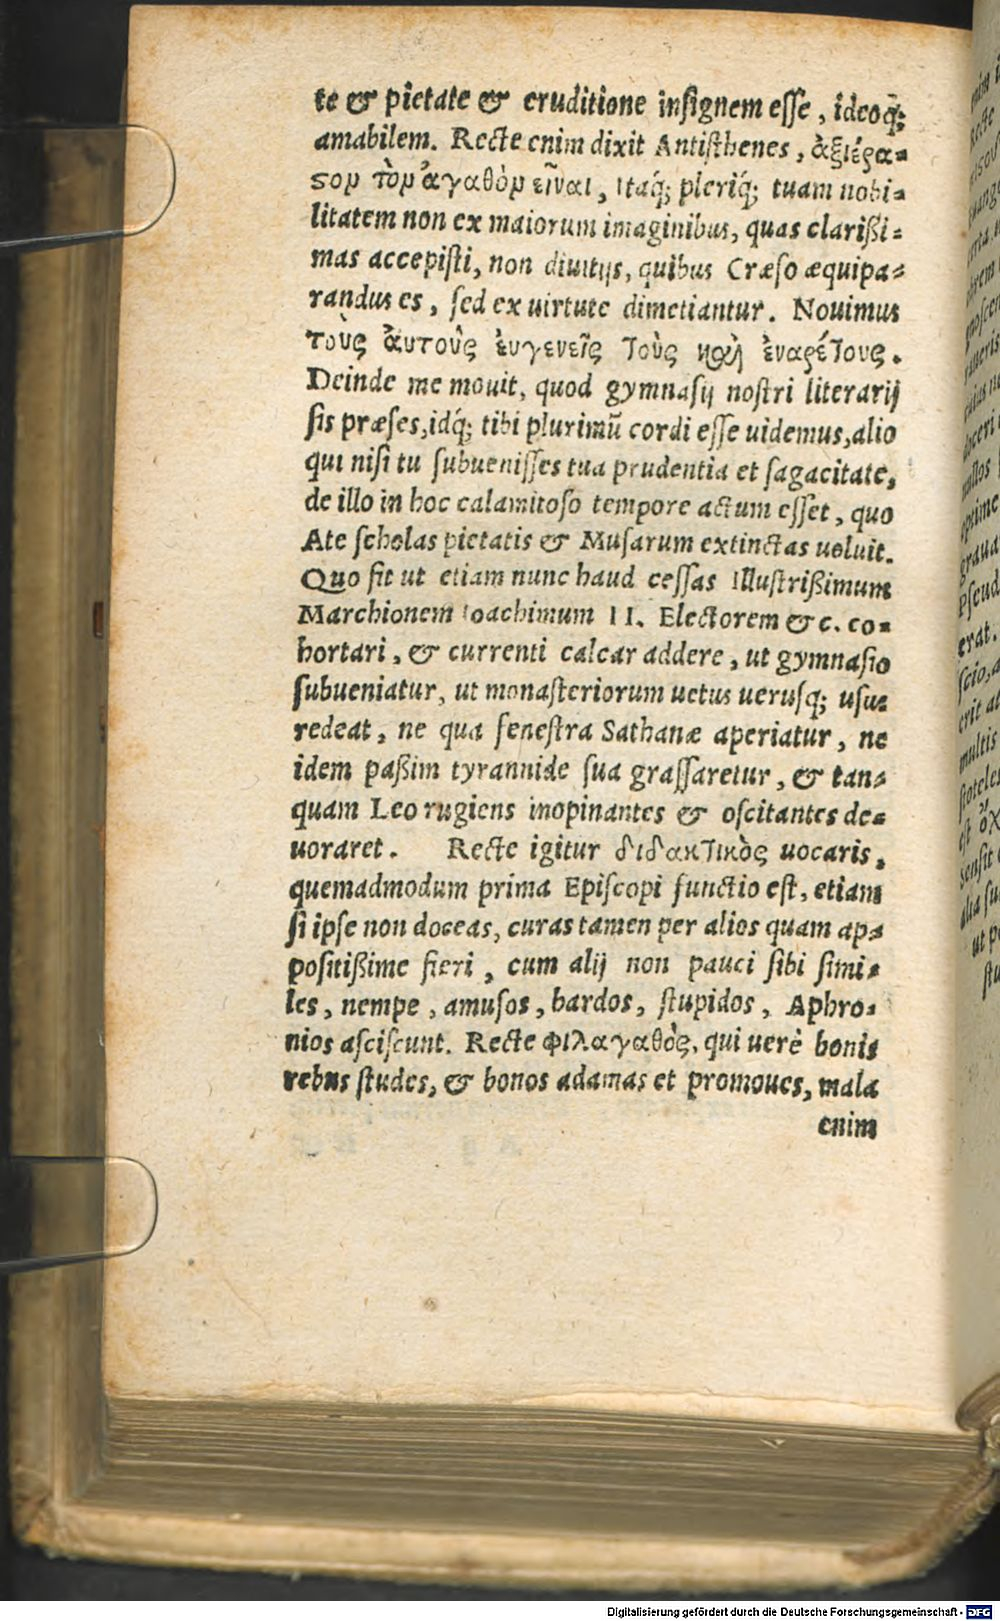 te & pietate & eruditione insignem esse, ideoq́;
amabilem. Recte enim dixit Antisthenes, ἀξιέρα=
σον τὸν ἀγαθὸν εἶναι, Itaq́; pleriq́; tuam nobi=
litatem non ex maiorum imaginibus, quas clarißi=
mas accepisti, non diuitijs, quibus Cræso æquipa=
randus es, sed ex uirtute dimetiantur. Nouimus
τοὺς ἀυτοὺς ἐυγενεῖς τοὺς καὶ ἐναρέτους.
Deinde me mouit, quod gymnasij nostri literarij
sis præses, idq́; tibi plurimū cordi esse uidemus, alio
qui nisi tu subuenisses tua prudentia et sagacitate,
de illo in hoc calamitoso tempore actum esset, quo
Ate scholas pietatis & Musarum extinctas uoluit.
Quo fit ut etiam nunc haud cessas Illustrißimum
Marchionem Ioachimum II. Electorem & c. co=
hortari, & currenti calcar addere, ut gymnasio
subueniatur, ut monasteriorum uetus uerusq; usus
redeat, ne qua fenestra Sathanæ aperiatur, ne
idem paßim tyrannide sua grassaretur, & tan=
quam Leo rugiens inopinantes & oscitantes de=
uoraret. Recte igitur διδακτικὸς uocaris,
quemadmodum prima Episcopi functio est, etiam
si ipse non doceas, curas tamen per alios quam ap=
positißime fieri, cum alij non pauci sibi simi=
les, nempe, amusos, bardos, stupidos, Aphro=
nios asciscunt. Recte φιλαγαθὸς, qui uerè bonis
rebus studes, & bonos adamas et promoues, mala
enim
Digitalisierung gefördert durch die Deutsche Forschungsgemeinschaft - DFG